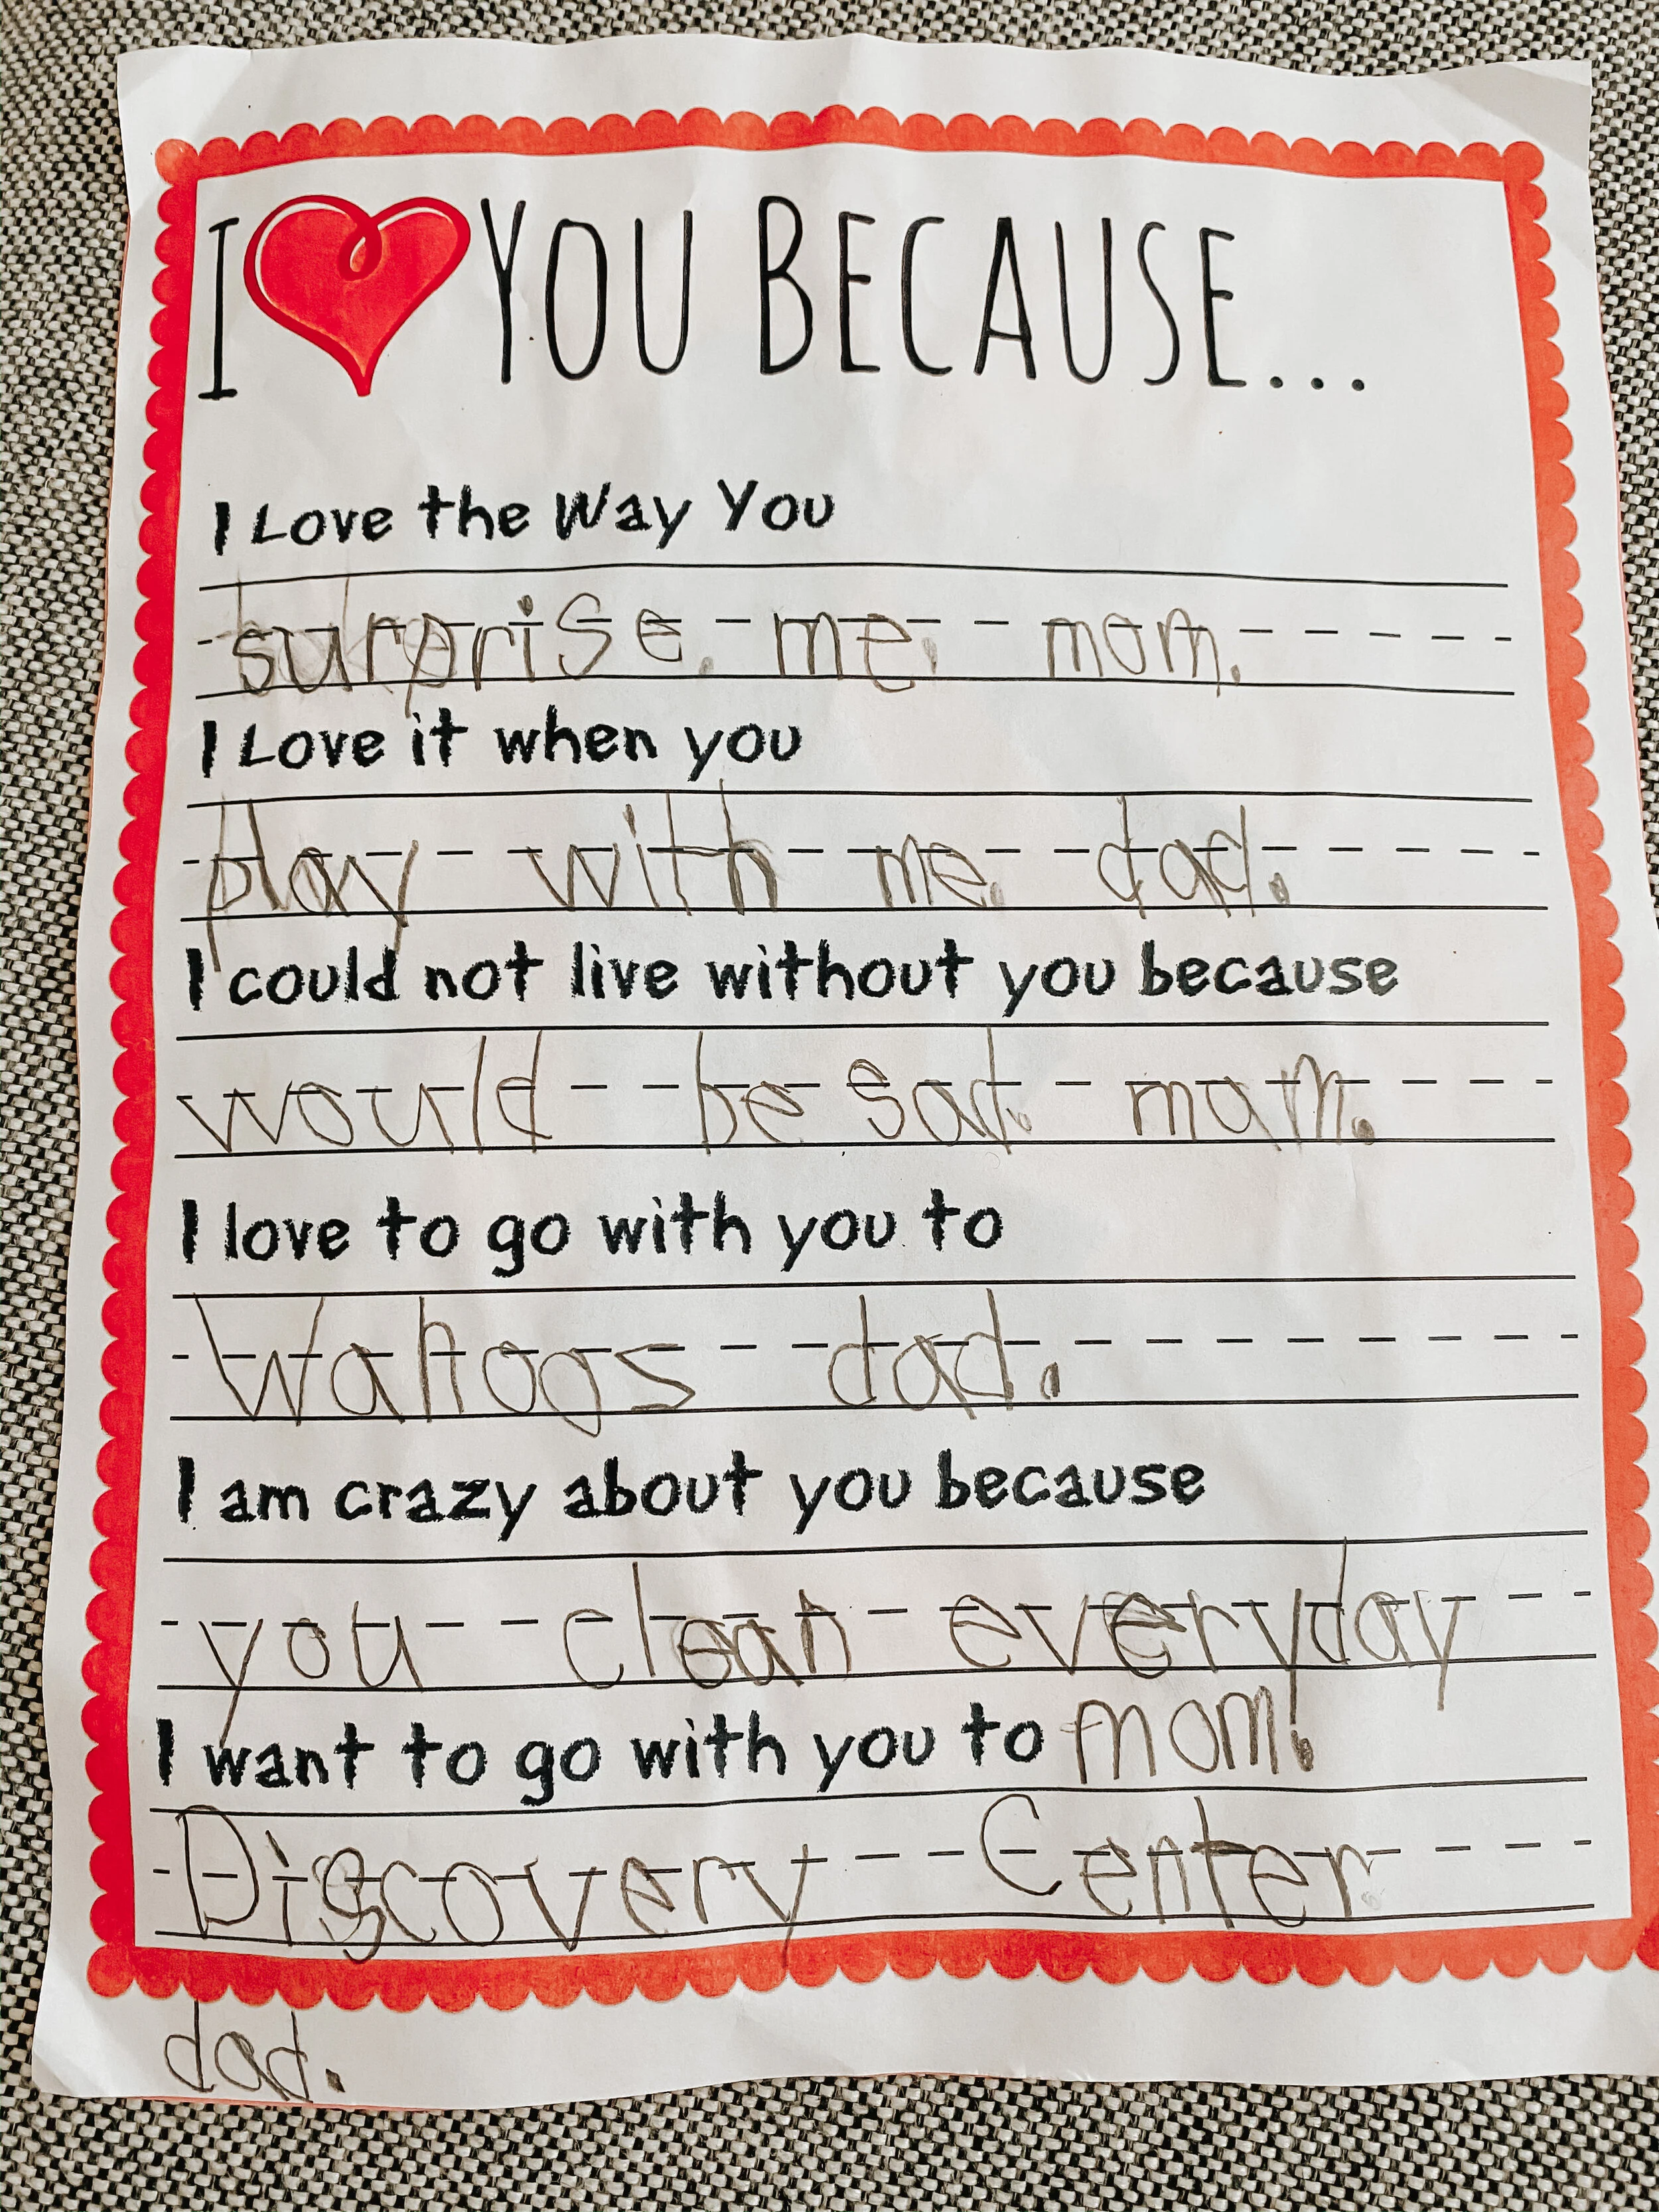 I ❤ YOU BECAUSE...
I Love the Way You
surprise. me. mom.
I Love it when you
play with me. dad.
I could not live without you because
would be sad. mom.
I love to go with you to
Wahoos dad.
I am crazy about you because
you clean everyday
I want to go with you to mom.
Discovery Center
dad.